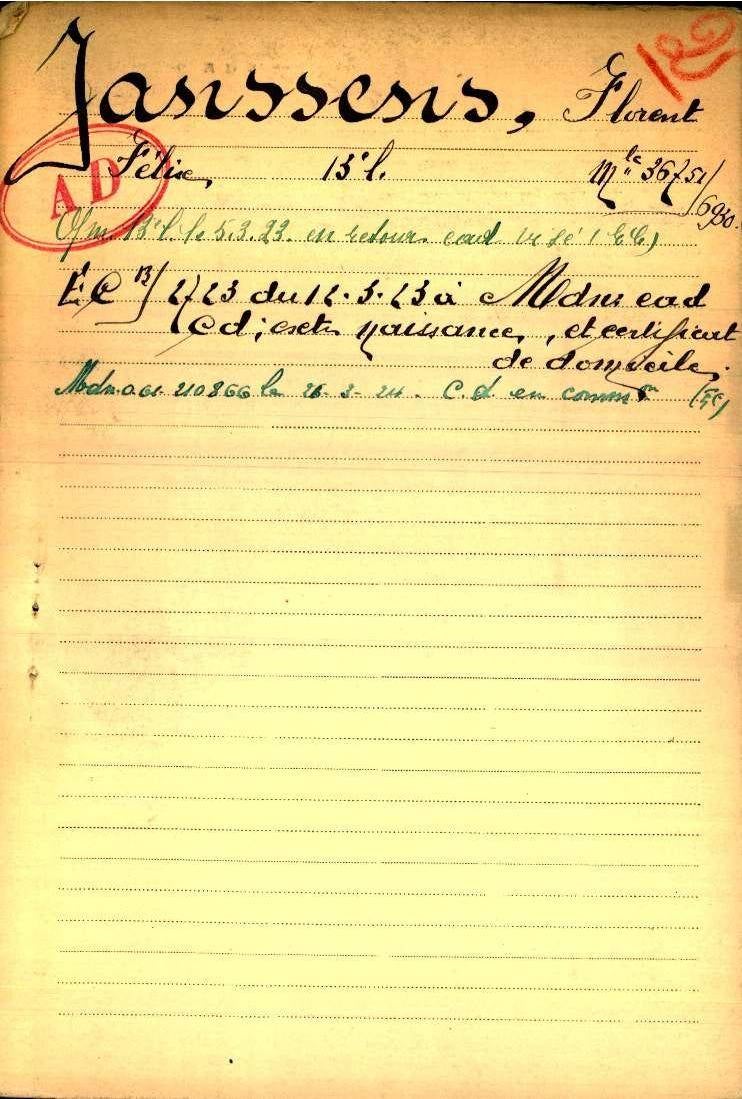 Janssens, Florent
Félix, 13e l. Mle 36751/6930.
AD
13e l. le 5.3.23. en retour ead
EC 13/ 2723 du 12.3.23 à Mdn: ead
Cd; extr naissance, et certificat
de domicile.
210866 le 26-3-24. C.d. en comm on (EC)